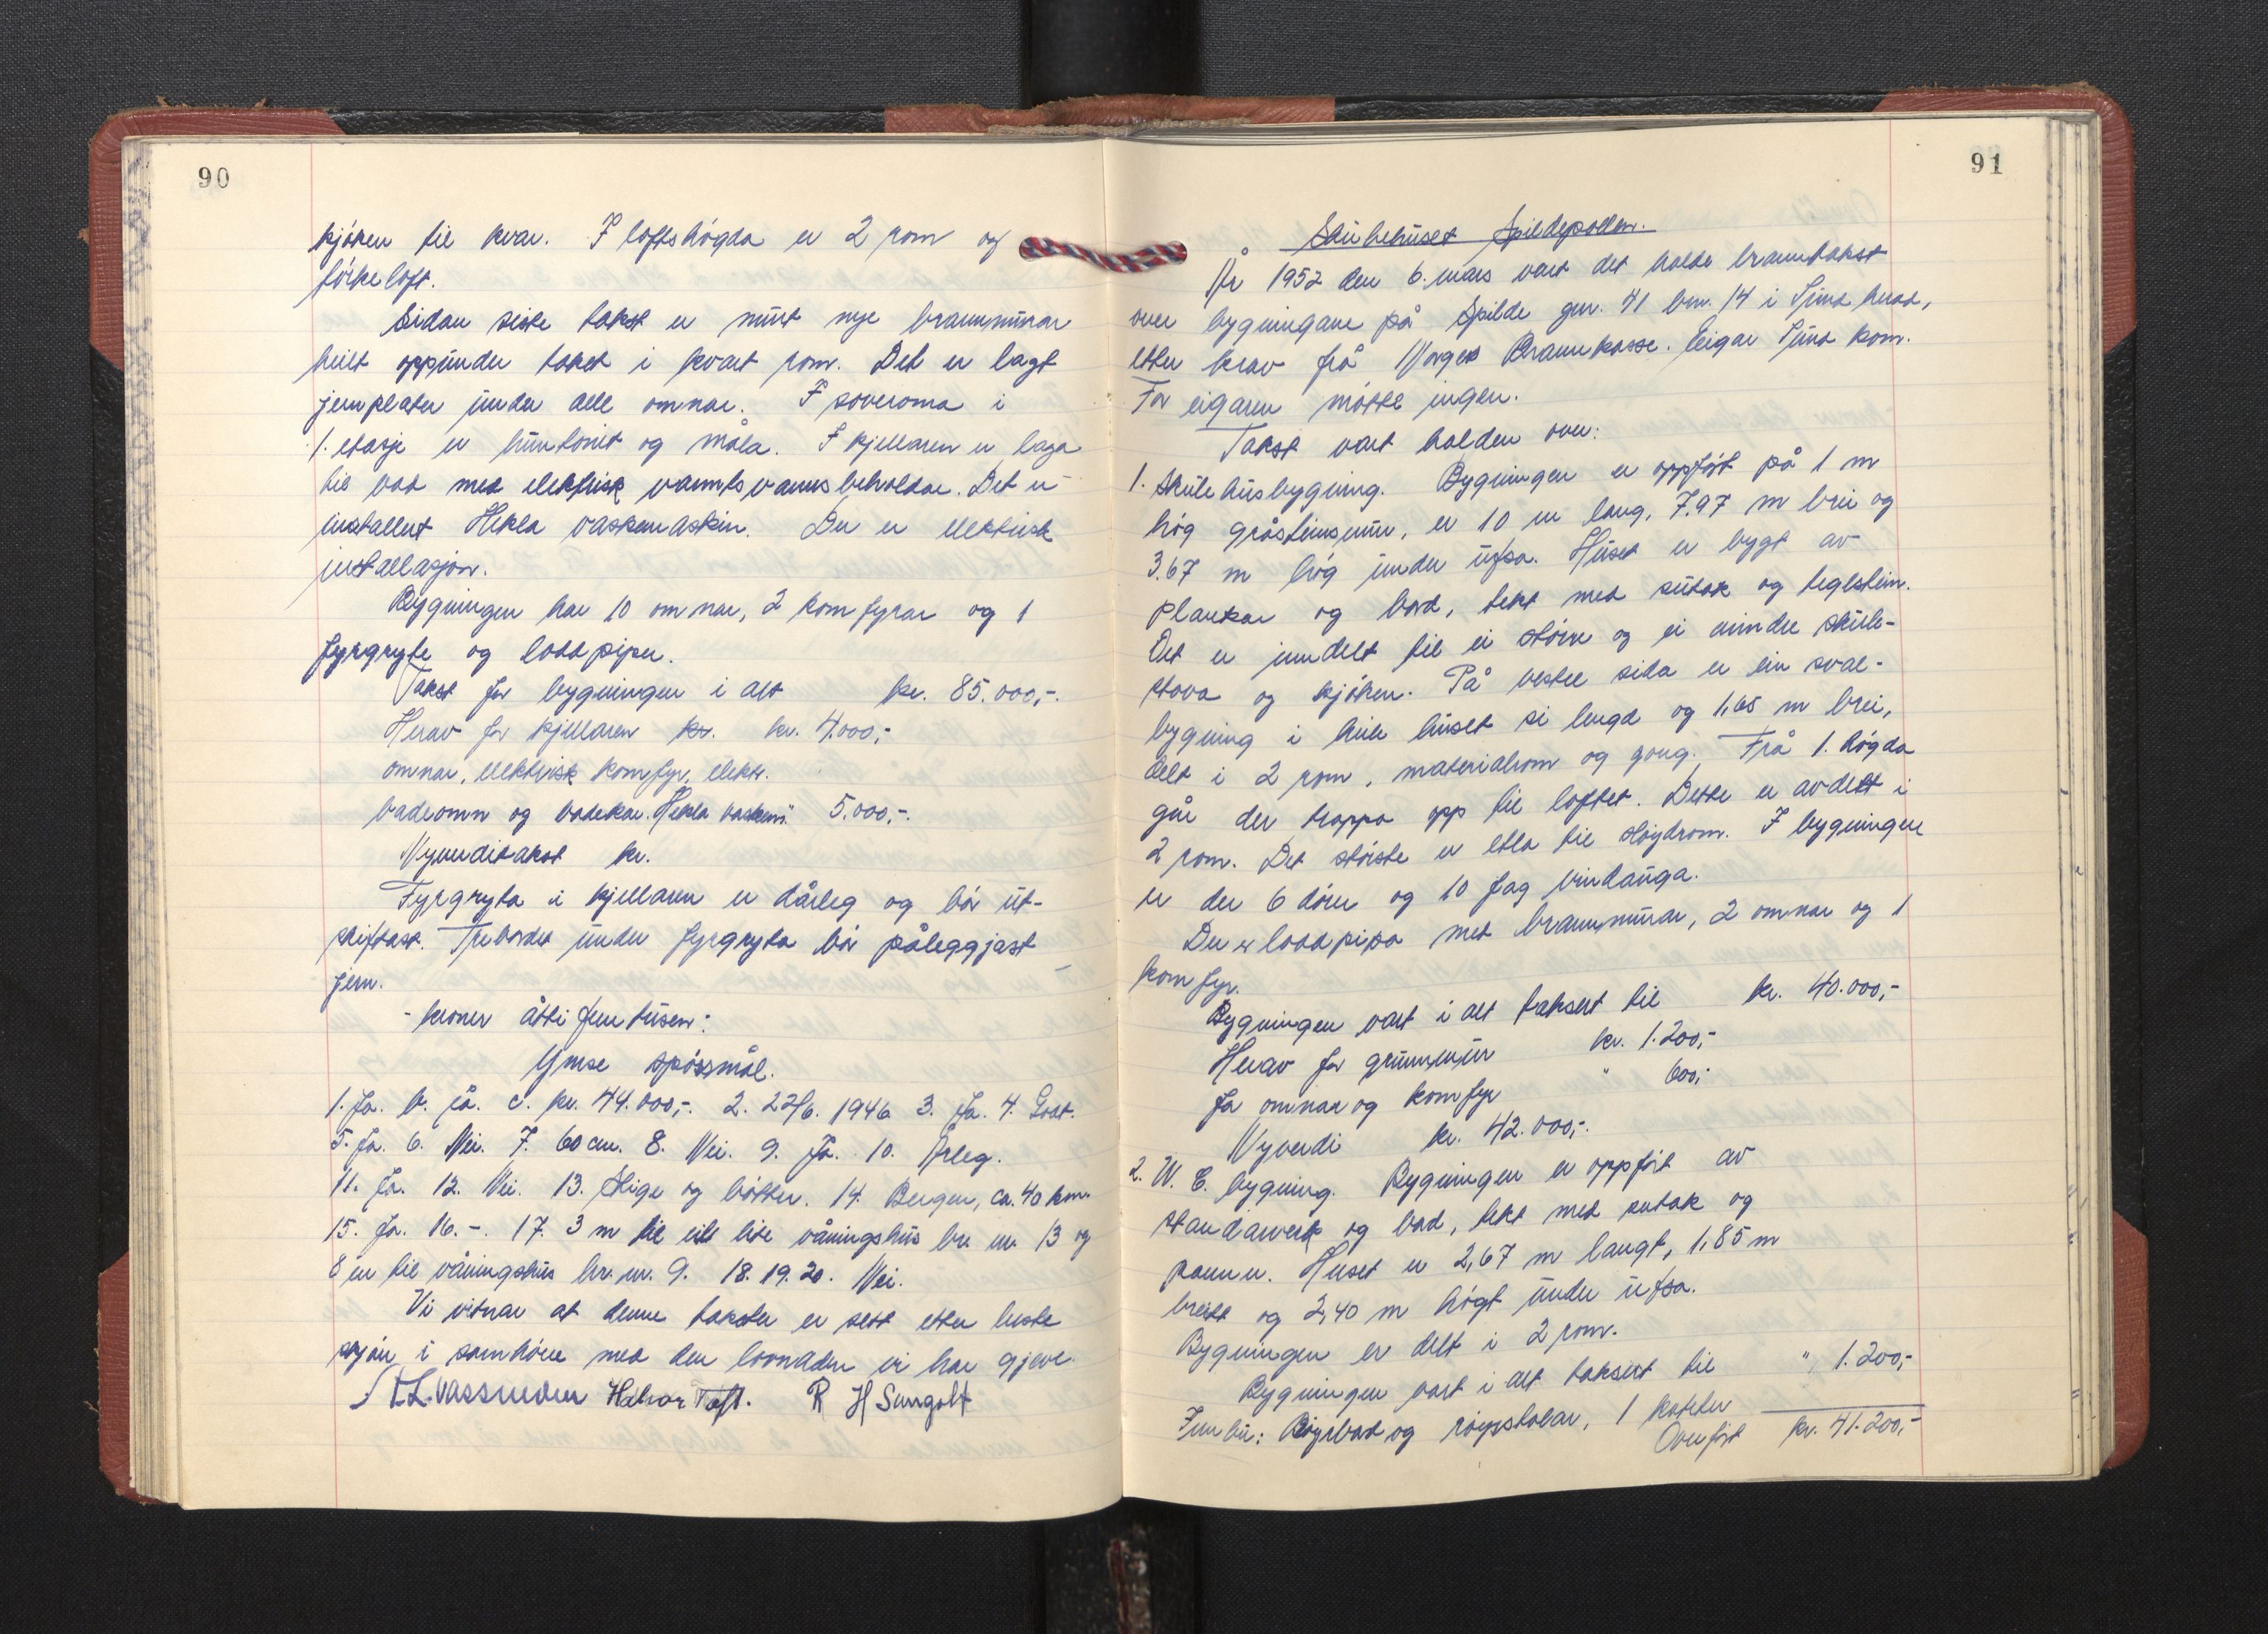 90
kjøken til kvar. I loftshøgda er 2 rom og
tørkeloft.
Sidan siste takst er murt nye brannmurar
heilt oppunder taket i kvart rom. Det er lagt
jernplater under alle omnar. I soveroma i
1. etasje er huntonit og måla. I kjellaren er laga
til bad med elektrisk varmtsvannsbeholdar. Det er
installert Hekla vaskemaskin. Der er elektrisk
installasjon.
Bygningen har 10 omnar, 2 komfyrar og 1
fyrgryte og loddpiper.
Takst for bygningen i alt kr. 85.000,-.
Herav for kjellaren kr. kr. 4.000,-
omnar, elektrisk komfyr, elektr.
badeomn og badekar. Hekla vaskem. " 5.000,-.
Nyverditakst kr.
Fyrgryta i kjellaren er dårleg og bør ut-
skiftast. Trebordet under fyrgryta bør påleggjast
jern.
- kroner åtti fem tusen -
Ymse spørsmål.
1. Ja. b. ja. c. kr. 44.000,-. 2. 22/6. 1946 3. Ja. 4. Godt.
5. Ja. 6. Nei. 7. 60 cm. 8. Nei. 9. Ja. 10. Årleg.
11. Ja. 12. Nei. 13. Stige og bøtter. 14. Bergen, ca. 40 km.
15. Ja. 16. -. 17. 3 m til eit lite våningshus br. nr. 13 og
8 m til våningshus br. nr. 9. 18. 19. 20. Nei.
Vi vitnar at denne taksten er sett etter beste
skjøn i samhøve med den lovnaden vi har gjeve.
Halvor Toft. R H Sungolt
91
Skulehuset Spildepollen.
År 1952 den 6. mars vart det halde branntakst
over bygningane på Spilde gnr. 41 bnr. 14 i Sund herad,
etter krav frå Norges Brannkasse. Eigar Sund kom.
For eigaren møtte ingen.
Takst vart halden over:
1. Skulehusbygning. Bygningen er oppført på 1 m
høg gråsteinsmur, er 10 m lang, 7.97 m brei og
3.67 m høg under ufsa. Huset er bygt av
plankar og bord, tekt med sutak og teglstein.
Det er inndelt til ei større og ei mindre skule-
stova og kjøken. På vestre sida er ein sval-
bygning i heile huset si lengd og 1,65 m brei,
delt i 2 rom, materialrom og gong. Frå 1. høgda
går der trappa opp til loftet. Dette er avdelt i
2 rom. Det største er etla til sløydrom. I bygningen
er der 6 dører og 10 fag vindauga.
Der er loddpipa med brannmurar, 2 omnar og 1
komfyr.
Bygningen vart i alt taksert til kr. 40.000,-
Herav for grunnmur kr. 1.200,-
for omnar og komfyr " 600,-
Nyverdi kr. 42.000,-.
2. W. C. bygning. Bygningen er oppført av
standarverk og bord, tekt med sutak og
panner. Huset er 2,67 m langt, 1,85 m
breitt og 2,40 m høgt under ufsa.
Bygningen er delt i 2 rom.
Bygningen vart i alt taksert til " 1.200,-
Innbu: 1 kateter
Overført kr. 41.200,-